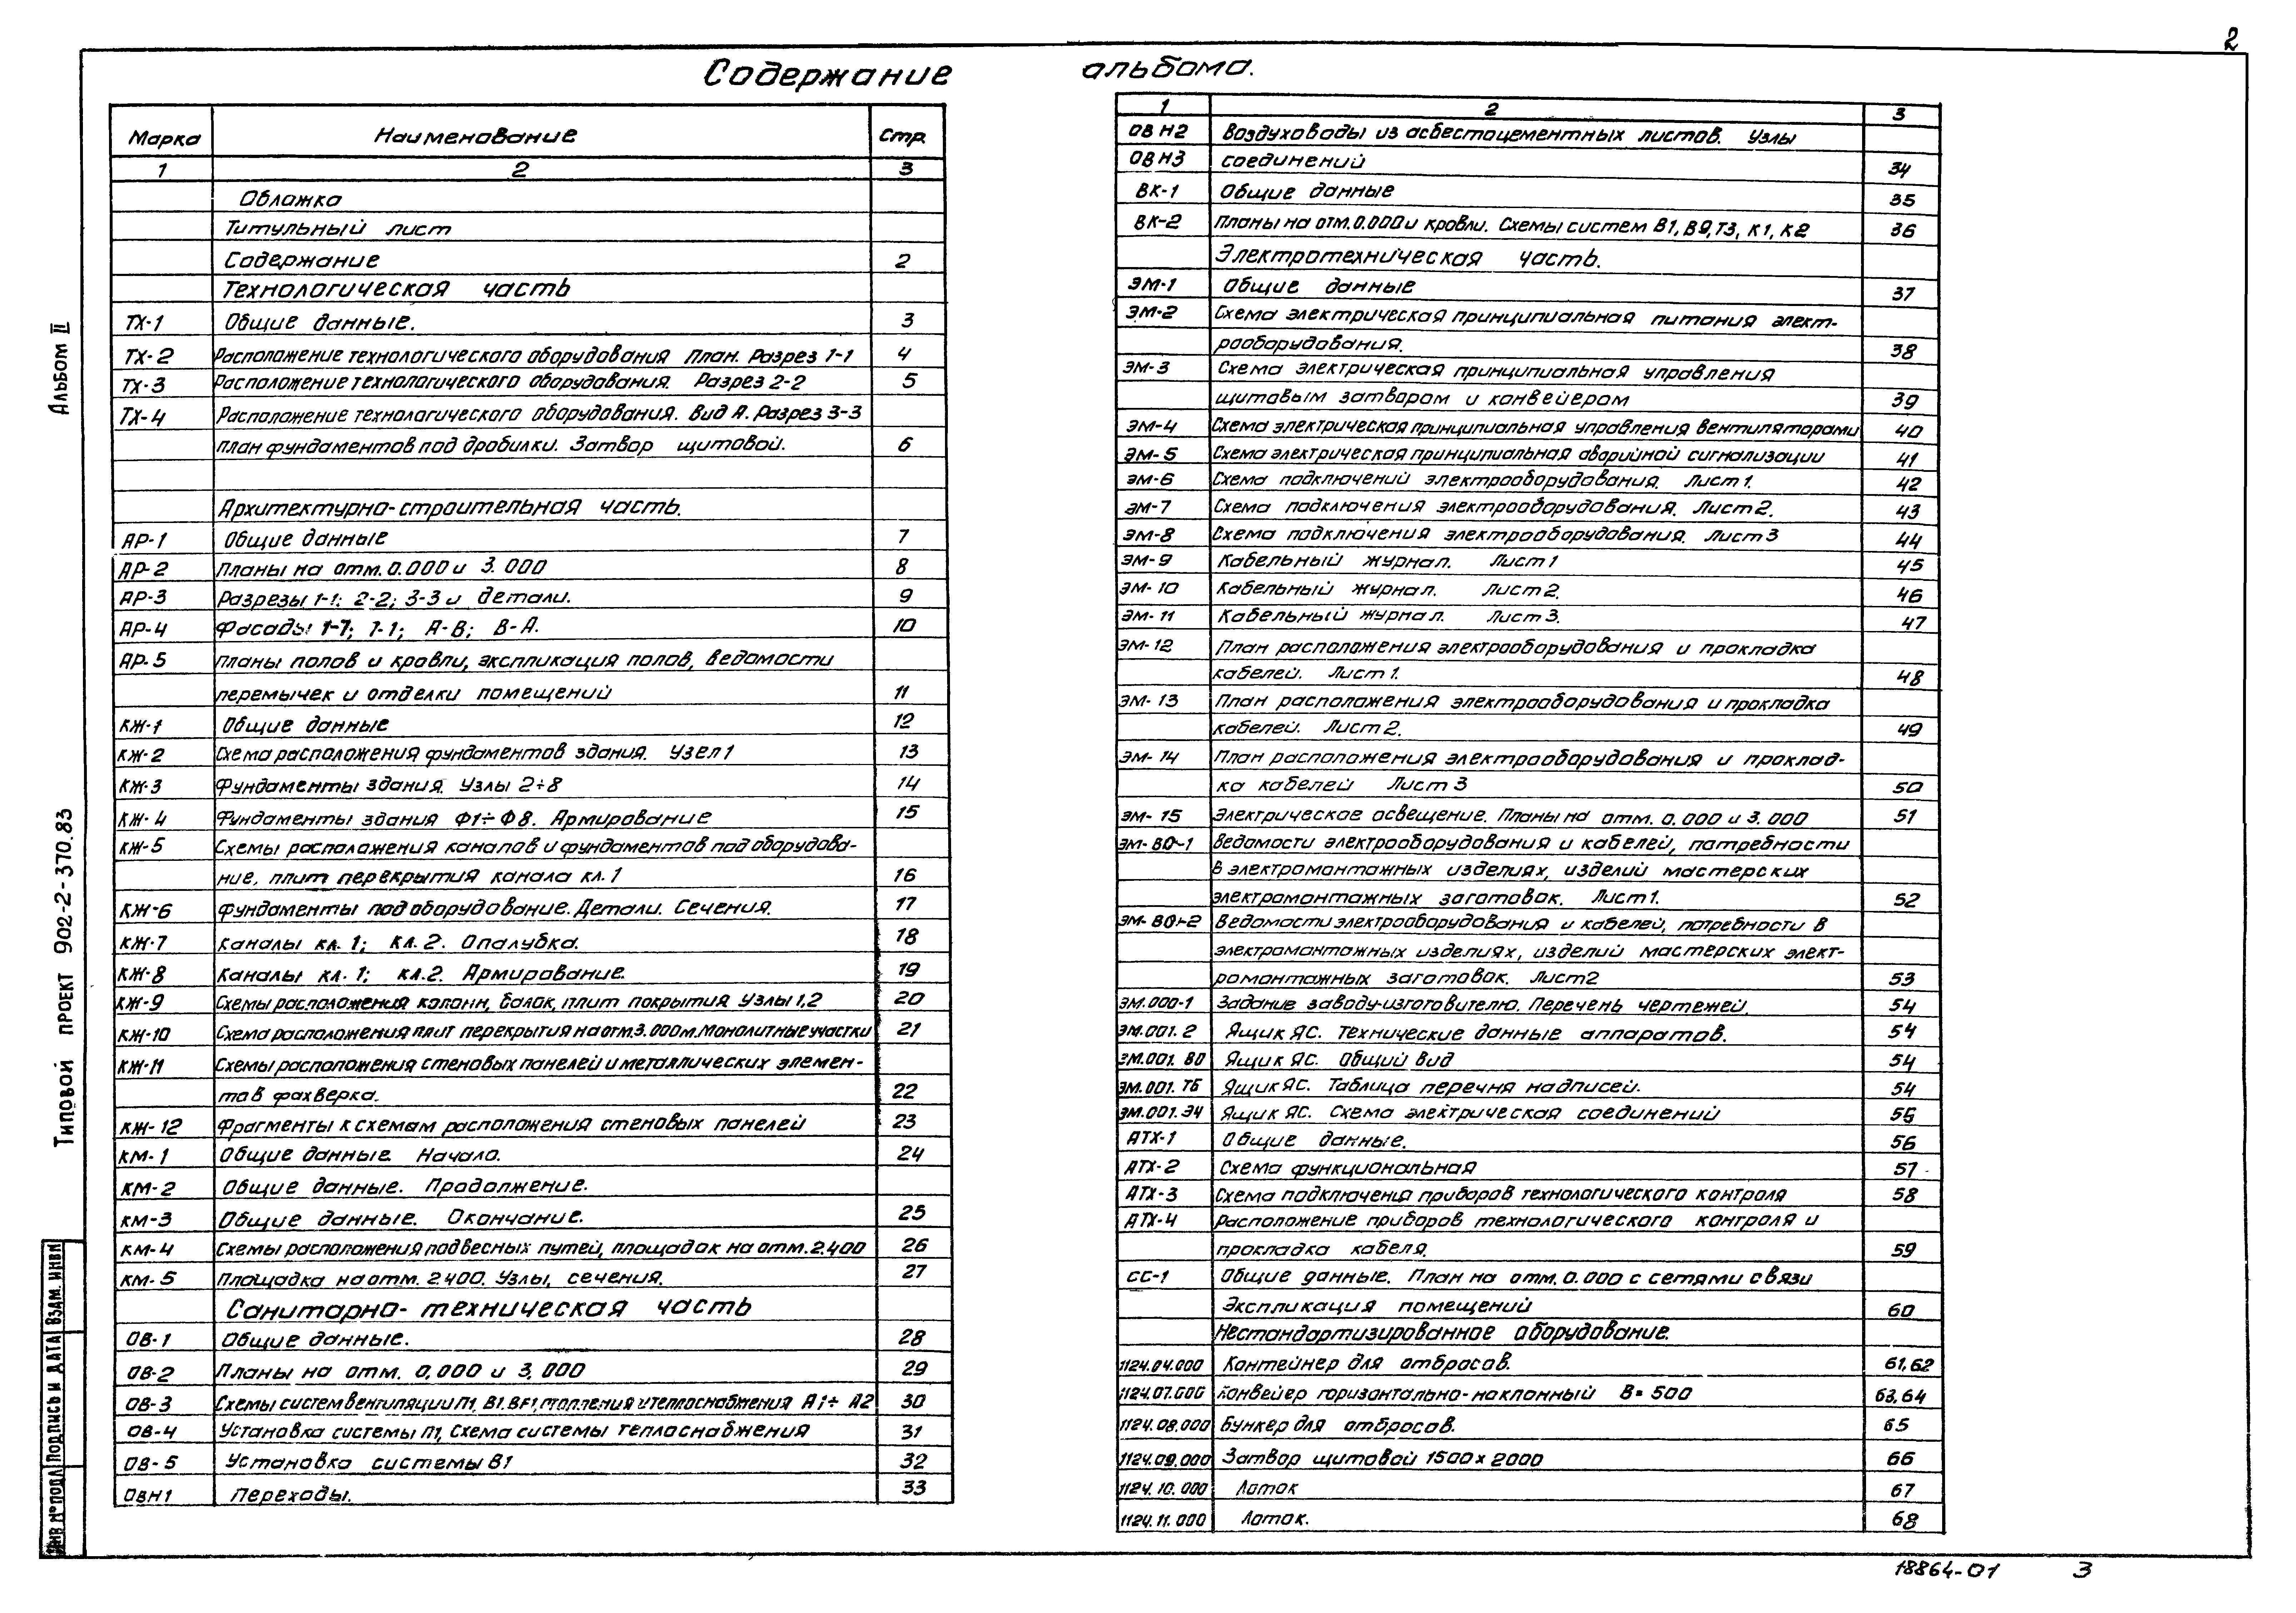 2
Содержание альбома.
Альбом II
Типовой проект 902-2-370.83
Взам. инв.
Подпись и дата
Инв № подл
Марка Наименование Стр.
1 2 3
Обложка
Титульный лист
Содержание 2
Технологическая часть
ТХ-1 Общие данные. 3
ТХ-2 Расположение технологического оборудования План. Разрез 1-1 4
ТХ-3 Расположение технологического оборудования. Разрез 2-2 5
ТХ-4 Расположение технологического оборудования. Вид А. Разрез 3-3
план фундаментов под дробилки. Затвор щитовой. 6
Архитектурно-строительная часть.
АР-1 Общие данные 7
АР-2 Планы на отм. 0.000 и 3.000 8
АР-3 Разрезы 1-1; 2-2; 3-3 и детали. 9
АР-4 Фасады 1-7; 7-1; А-В; В-А. 10
АР-5 Планы полов и кровли, экспликация полов, ведомости
перемычек и отделки помещений 11
КЖ-1 Общие данные 12
КЖ-2 Схема расположения фундаментов здания. Узел 1 13
КЖ-3 Фундаменты здания. Узлы 2÷8 14
КЖ-4 Фундаменты здания Ф1÷Ф8. Армирование 15
КЖ-5 Схемы расположения каналов и фундаментов под оборудова-
ние, плит перекрытия канала кл.1 16
КЖ-6 Фундаменты под оборудование. Детали. Сечения. 17
КЖ-7 Каналы кл.1; кл.2. Опалубка. 18
КЖ-8 Каналы кл.1; кл.2. Армирование. 19
КЖ-9 Схемы расположения колонн, балок, плит покрытия Узлы 1,2 20
КЖ-10 Схема расположения плит перекрытия на отм.3.000м. Монолитные участки 21
КЖ-11 Схемы расположения стеновых панелей и металлических элемен-
тов фахверка. 22
КЖ-12 Фрагменты к схемам расположения стеновых панелей 23
КМ-1 Общие данные Начало. 24
КМ-2 Общие данные. Продолжение.
КМ-3 Общие данные. Окончание. 25
КМ-4 Схемы расположения подвесных путей, площадок на отм.2.400 26
КМ-5 Площадка на отм. 2.400. Узлы, сечения. 27
Санитарно-техническая часть
ОВ-1 Общие данные. 28
ОВ-2 Планы на отм. 0,000 и 3,000 29
ОВ-3 Схемы систем вентиляции П1, В1. ВЕ1, отопления и теплоснабжения А1÷А2 30
ОВ-4 Установка системы П1, Схема системы теплоснабжения 31
ОВ-5 Установка системы В1 32
ОВН1 Переходы. 33
1 2 3
ОВН2 Воздуховоды из асбестоцементных листов. Узлы
ОВН3 соединений 34
ВК-1 Общие данные 35
ВК-2 Планы на отм.0.000 и кровли. Схемы систем В1, В9, Т3, К1, К2 36
Электротехническая часть.
ЭМ-1 Общие данные 37
ЭМ-2 Схема электрическая принципиальная питания элект-
рооборудования. 38
ЭМ-3 Схема электрическая принципиальная управления
щитовым затвором и конвейером 39
ЭМ-4 Схема электрическая принципиальная управления вентиляторами 40
ЭМ-5 Схема электрическая принципиальная аварийной сигнализации 41
ЭМ-6 Схема подключений электрооборудования. Лист 1. 42
ЭМ-7 Схема подключения электрооборудования. Лист 2. 43
ЭМ-8 Схема подключения электрооборудования. Лист 3 44
ЭМ-9 Кабельный журнал. Лист 1 45
ЭМ-10 Кабельный журнал. Лист 2. 46
ЭМ-11 Кабельный журнал. Лист 3. 47
ЭМ-12 План расположения электрооборудования и прокладка
кабелей. Лист 1. 48
ЭМ-13 План расположения электрооборудования и прокладка
кабелей. Лист 2. 49
ЭМ-14 План расположения электрооборудования и проклад-
ка кабелей Лист 3 50
ЭМ-15 Электрическое освещение. Планы на отм. 0.000 и 3.000 51
ЭМ-ВО-1 Ведомости электрооборудования и кабелей, потребности
в электромонтажных изделиях, изделий мастерских
электромонтажных заготовок. Лист 1. 52
ЭМ-ВО-2 Ведомости электрооборудования и кабелей, потребности в
электромонтажных изделиях, изделий мастерских элект-
ромонтажных заготовок. Лист 2 53
ЭМ.000-1 Задание заводу-изготовителю. Перечень чертежей. 54
ЭМ.001.2 Ящик ЯС. Технические данные аппаратов. 54
ЭМ.001.ВО Ящик ЯС. Общий вид 54
ЭМ.001.ТБ Ящик ЯС. Таблица перечня надписей. 54
ЭМ.001.Э4 Ящик ЯС. Схема электрическая соединений 55
АТХ-1 Общие данные. 56
АТХ-2 Схема функциональная 57
АТХ-3 Схема подключения приборов технологического контроля 58
АТХ-4 Расположение приборов технологического контроля и
прокладка кабеля. 59
СС-1 Общие данные. План на отм. 0.000 с сетями связи
Экспликация помещений 60
Нестандартизированное оборудование.
1124.04.000 Контейнер для отбросов. 61,62
1124.07.000 Конвейер горизонтально-наклонный В=500 63,64
1124.08.000 Бункер для отбросов. 65
1124.09.000 Затвор щитовой 1500×2000 66
1124.10.000 Лоток 67
1124.11.000 Лоток. 68
18864-01 3